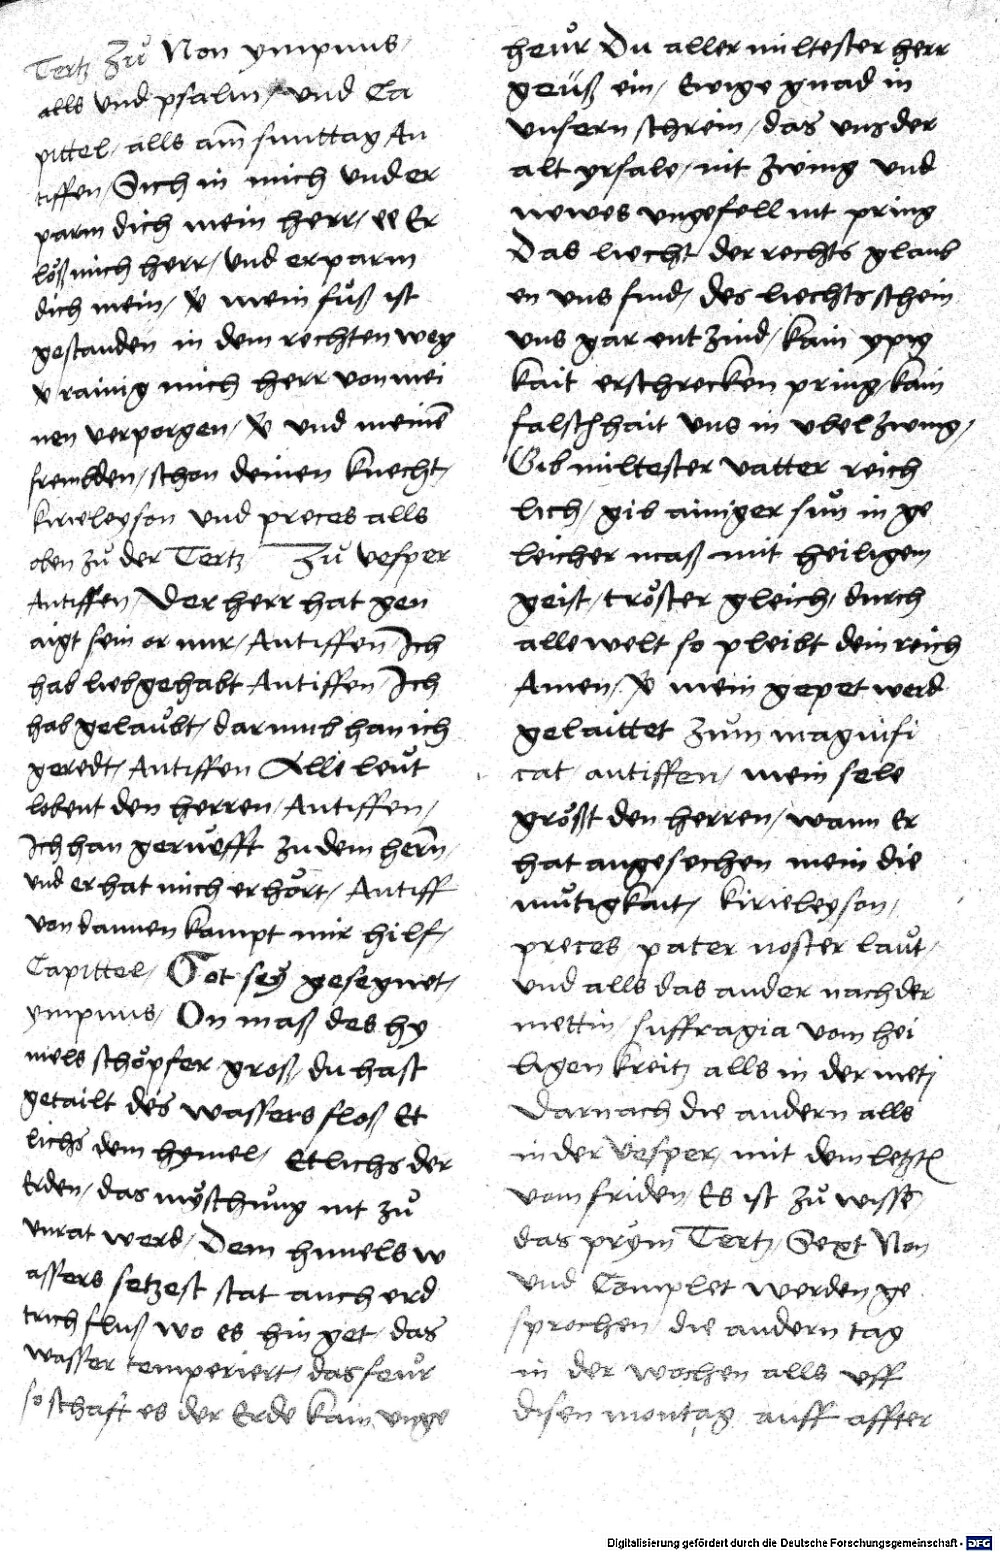 Tertz Zů Non ympnus /
alls vnd psalm / vnd Ca
pittel / alls am̄ sunttag An
tiffen / Sich in mich vnd er
parm dich mein herr / ee Er
löß mich herr / vnd erparm
dich mein / ꝟ mein fůß ist
gestanden in dem rechten weg
ꝟ rainig mich herr von mei
nen verporgen / ꝟ vnd meinē
frembden / schon deinen knecht /
kirieleyson vnd preces alls
oben zů der Tertz Zů vesper
Antiffen / Der herr hat gen
aigt sein or mir / Antiffen Ich
hab lieb gehabt Antiffen / Ich
hab gelaubt / darumb han ich
geredt / Antiffen Alle leůt
lobent den herren / Antiffen /
Ich han gerůefft zu dem herrn̄ /
vnd er hat mich erhört / Antiff
von dannen kompt mir hilf /
Capittel / Got seÿ gesegnet /
ympnus / On maß des hy
mels schöpfer groß / du hast
getailt des wassers floß Et
lichs dem hymel / Etlichs der
Erden / das myschůng nit zů
vnrat werd / Dem himels w
assers setzest stat auch erd
trich fluß wo es hin get / das
wasser temperiert / das feůr
so schaft es der Erde kain vnge
heůr Du aller miltester herr
geůß ein / Ewige gnad in
vnsern schrein / das vns der
alt yrsale / nit zwing vnd
newes vngefell nit pring
Das liecht der rechts glaub
en vns find / des liechts schein
vns gar entzind / kain yppig
kait erschrecken pring / kain
falschhait vns in vbel zwing /
Gib miltester vatter reich
lich / gib ainiger sůn in ge
leicher maß mit heiligem
geist / tröster gleich / durch
alle welt so pleibt dein reich
Amen / ꝟ mein gepet werd
gelaittet zům magnifi
cat antiffen / mein sele
größt den herren / wann Er
hat angesechen mein die
můtigkait / kirieleyson /
preces pater noster laůt /
vnd alls das ander nach der
mettin / suffragia vom hei
ligen kreitz alls in der meti
Darnach die andern alls
in der Vesper / mit dem letztē
vom friden / Es ist zů wissē
das prÿm Tertz / Sext Non
vnd Complet werden ge
sprochen / die andern tag
in der wochen alls vff
disen montag / auff affter
Digitalisierung gefördert durch die Deutsche Forschungsgemeinschaft - DFG